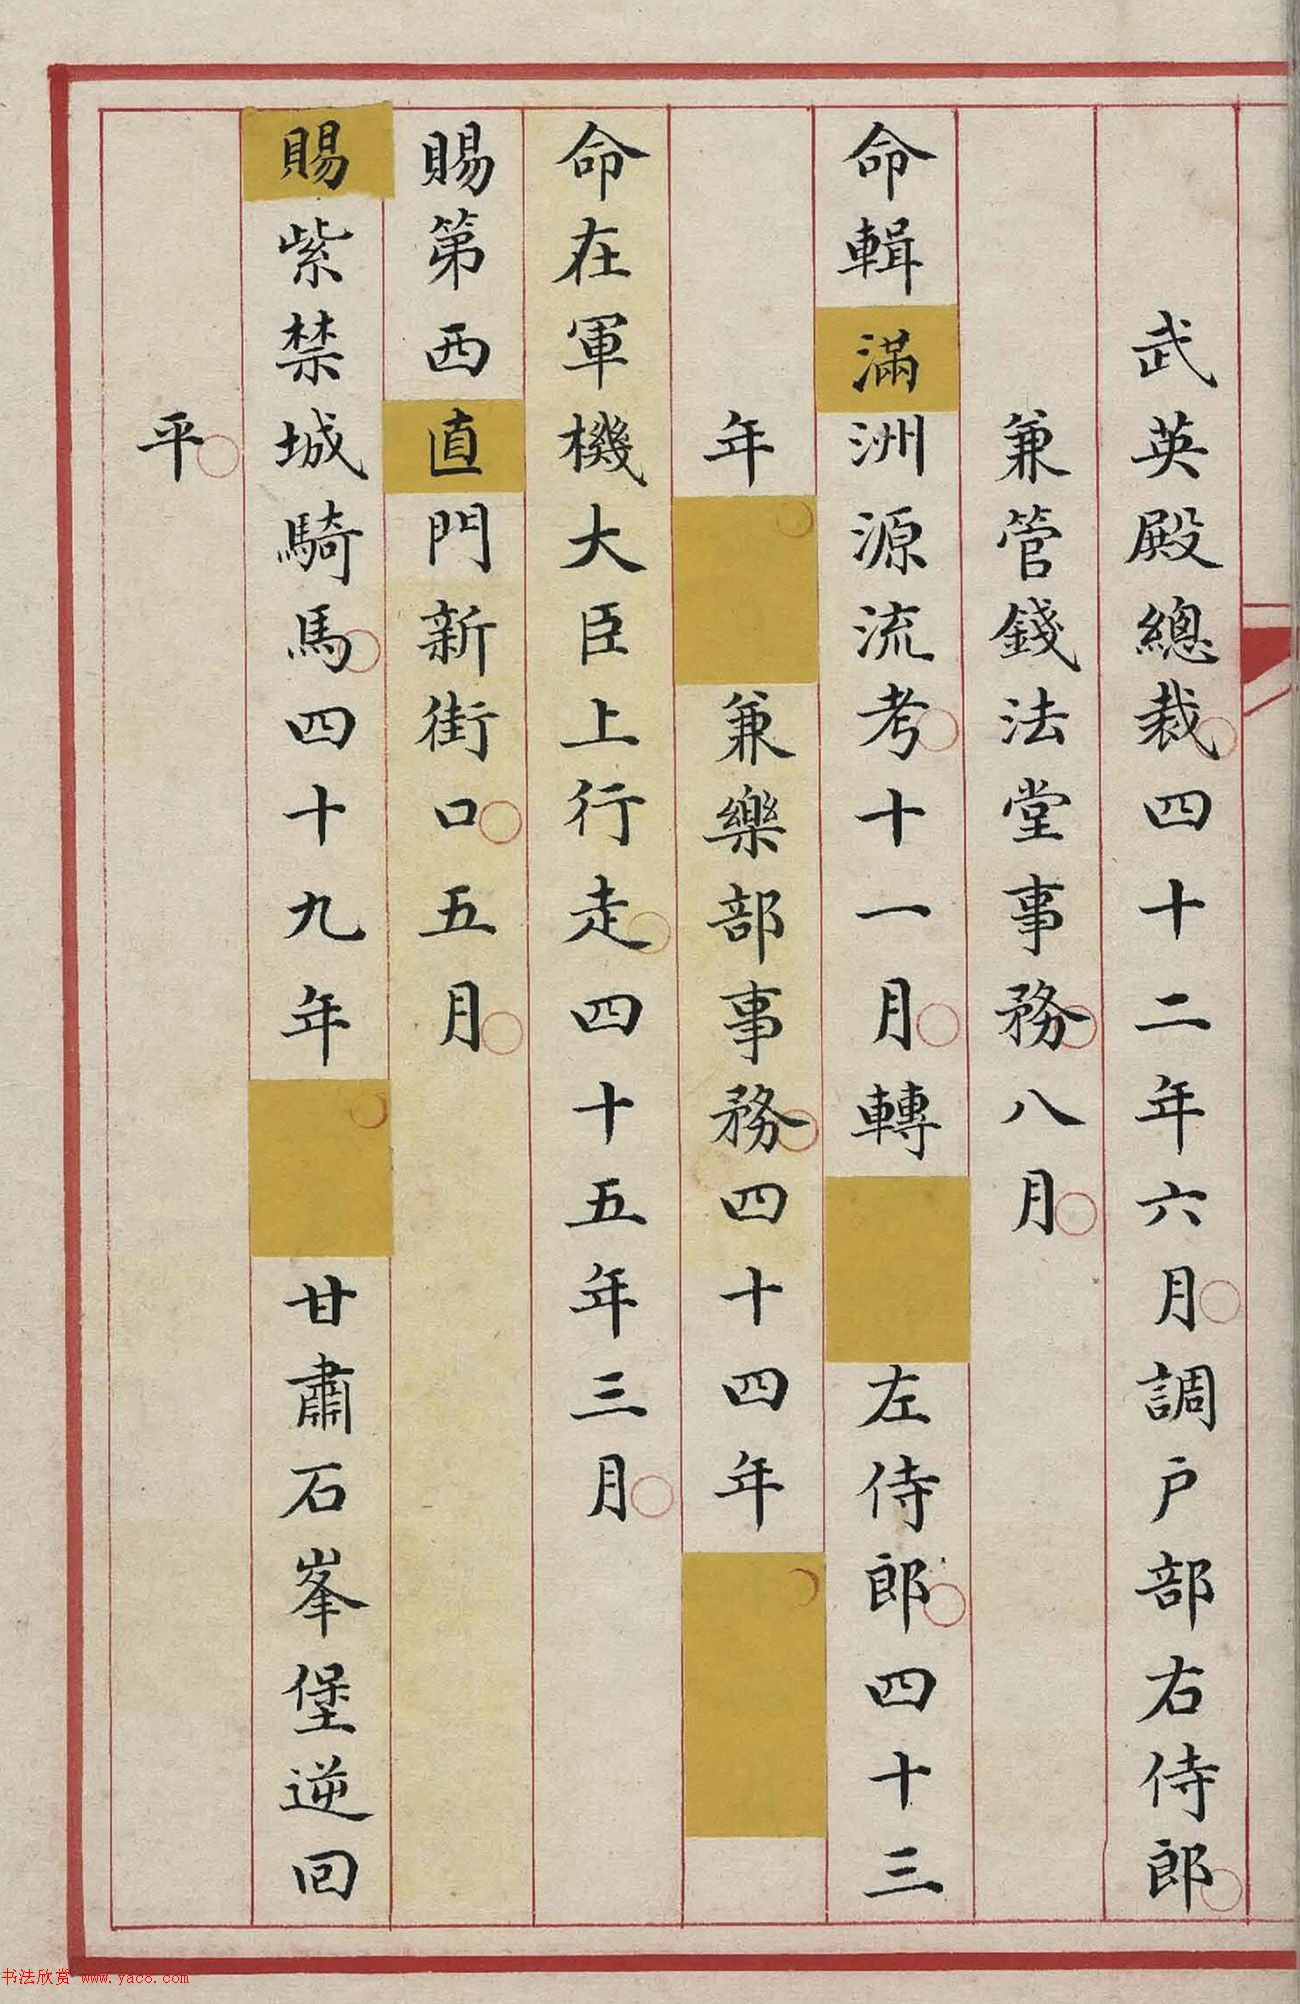 武英殿總裁四十二年六月調户部右侍郎
兼管錢法堂事務八月
命輯滿洲源流考十一月轉左侍郎四十三
年兼樂部事務四十四年
命在軍機大臣上行走四十五年三月
賜第西直門新街口五月
賜紫禁城騎馬四十九年甘肅石峯堡逆回
平
书法欣赏 www.yac8.com